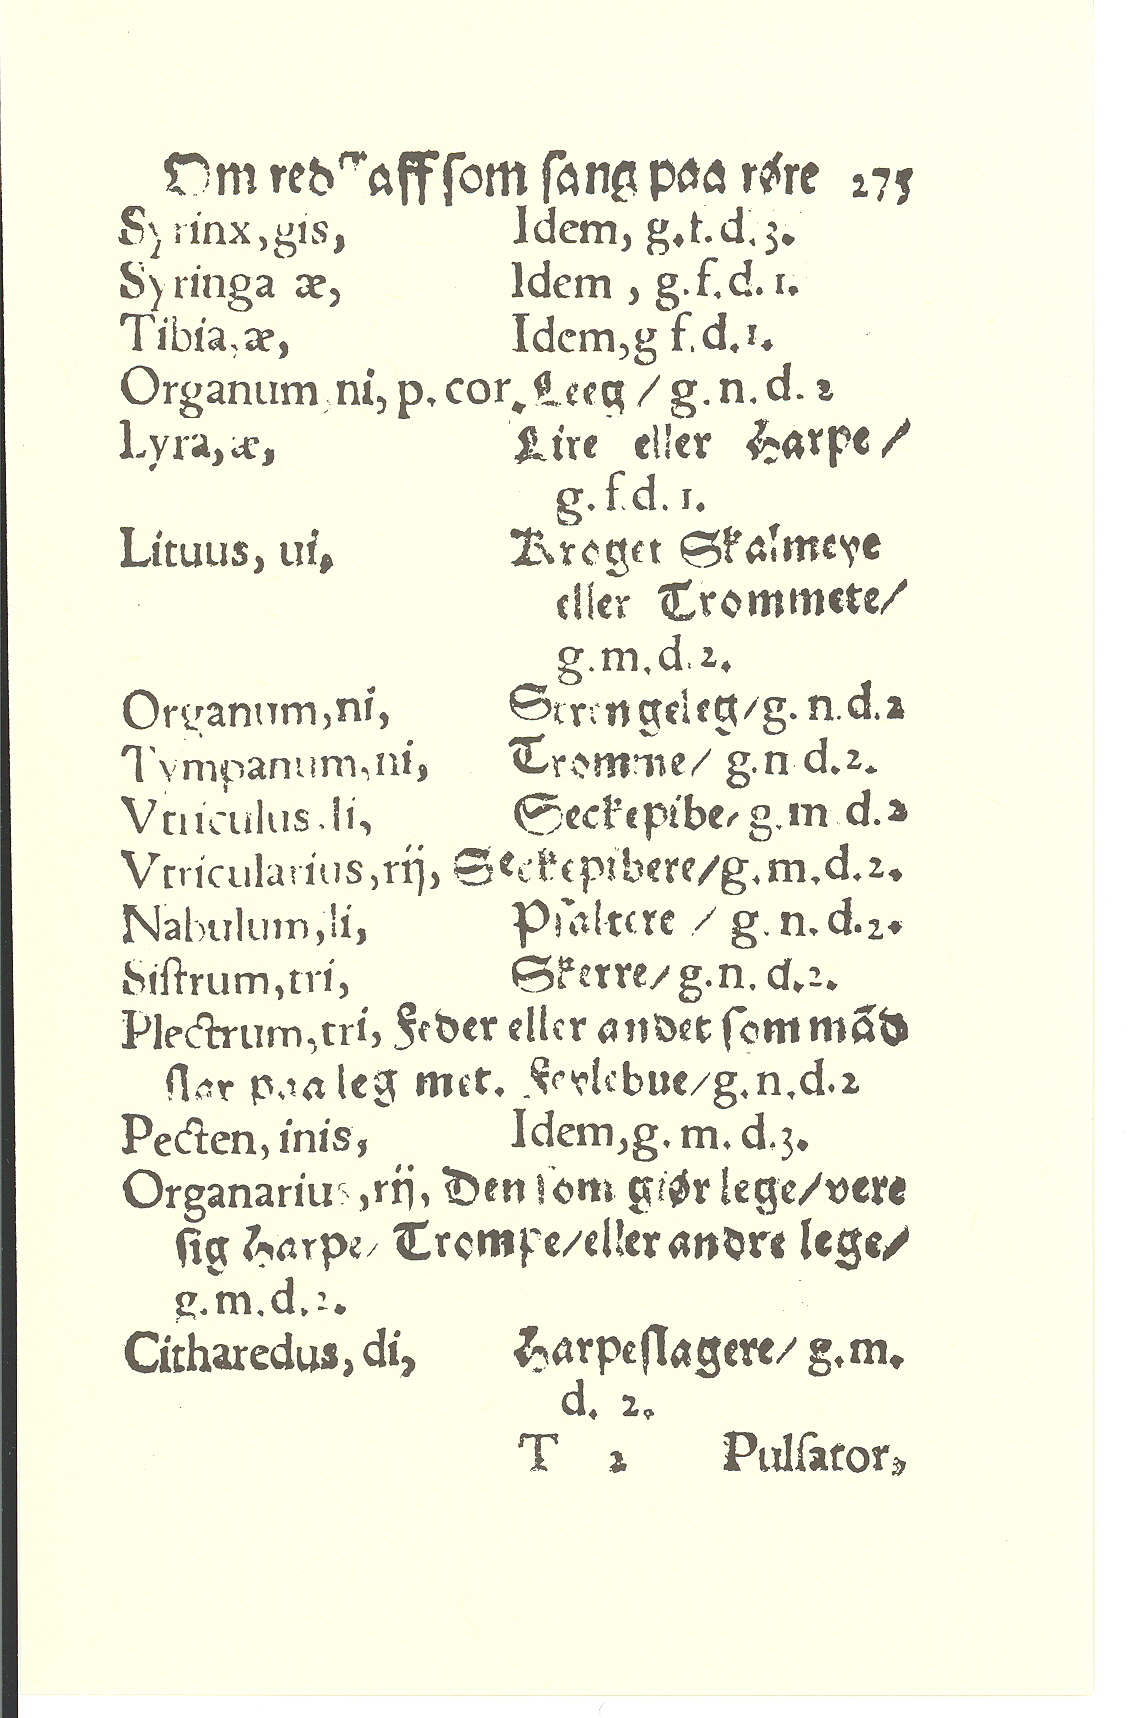 Om red aff som sang paa røre 275
Syrinx, gis, Idem, g.f.d.3.
Syringa æ, Idem, g.f.d.1.
Tibia, æ, Idem, g f.d.1.
Organum, ni, p. cor. Leeg / g.n.d.2
Lyra, æ, Lire eller Harpe /
g.f.d.1.
Lituus, ui, Kroget Skalmeye
eller Trommete /
g.m.d.2.
Organum, ni, Strengeleg / g.n.d.2
Tympanum, ni, Tromme / g.n d.2.
Vtriculus, li, Seckepibe / g.m d.2
Vtricularius, rij, Seckepibere / g.m.d.2.
Nabulum, li, Psaltere / g.n.d.2.
Siſtrum, tri, Skerre / g.n.d.2.
Plectrum, tri, Feder eller andet ſom mād
ſlar paa leg met. Feylebue / g.n.d.2
Pecten, inis, Idem, g.m.d.3.
Organarius, rij, Den ſom giør lege / vere
ſig Harpe / Trompe / eller andre lege /
g.m.d.2.
Citharedus, di, Harpeſlagere / g.m.
d. 2.
T 2 Pulſator,